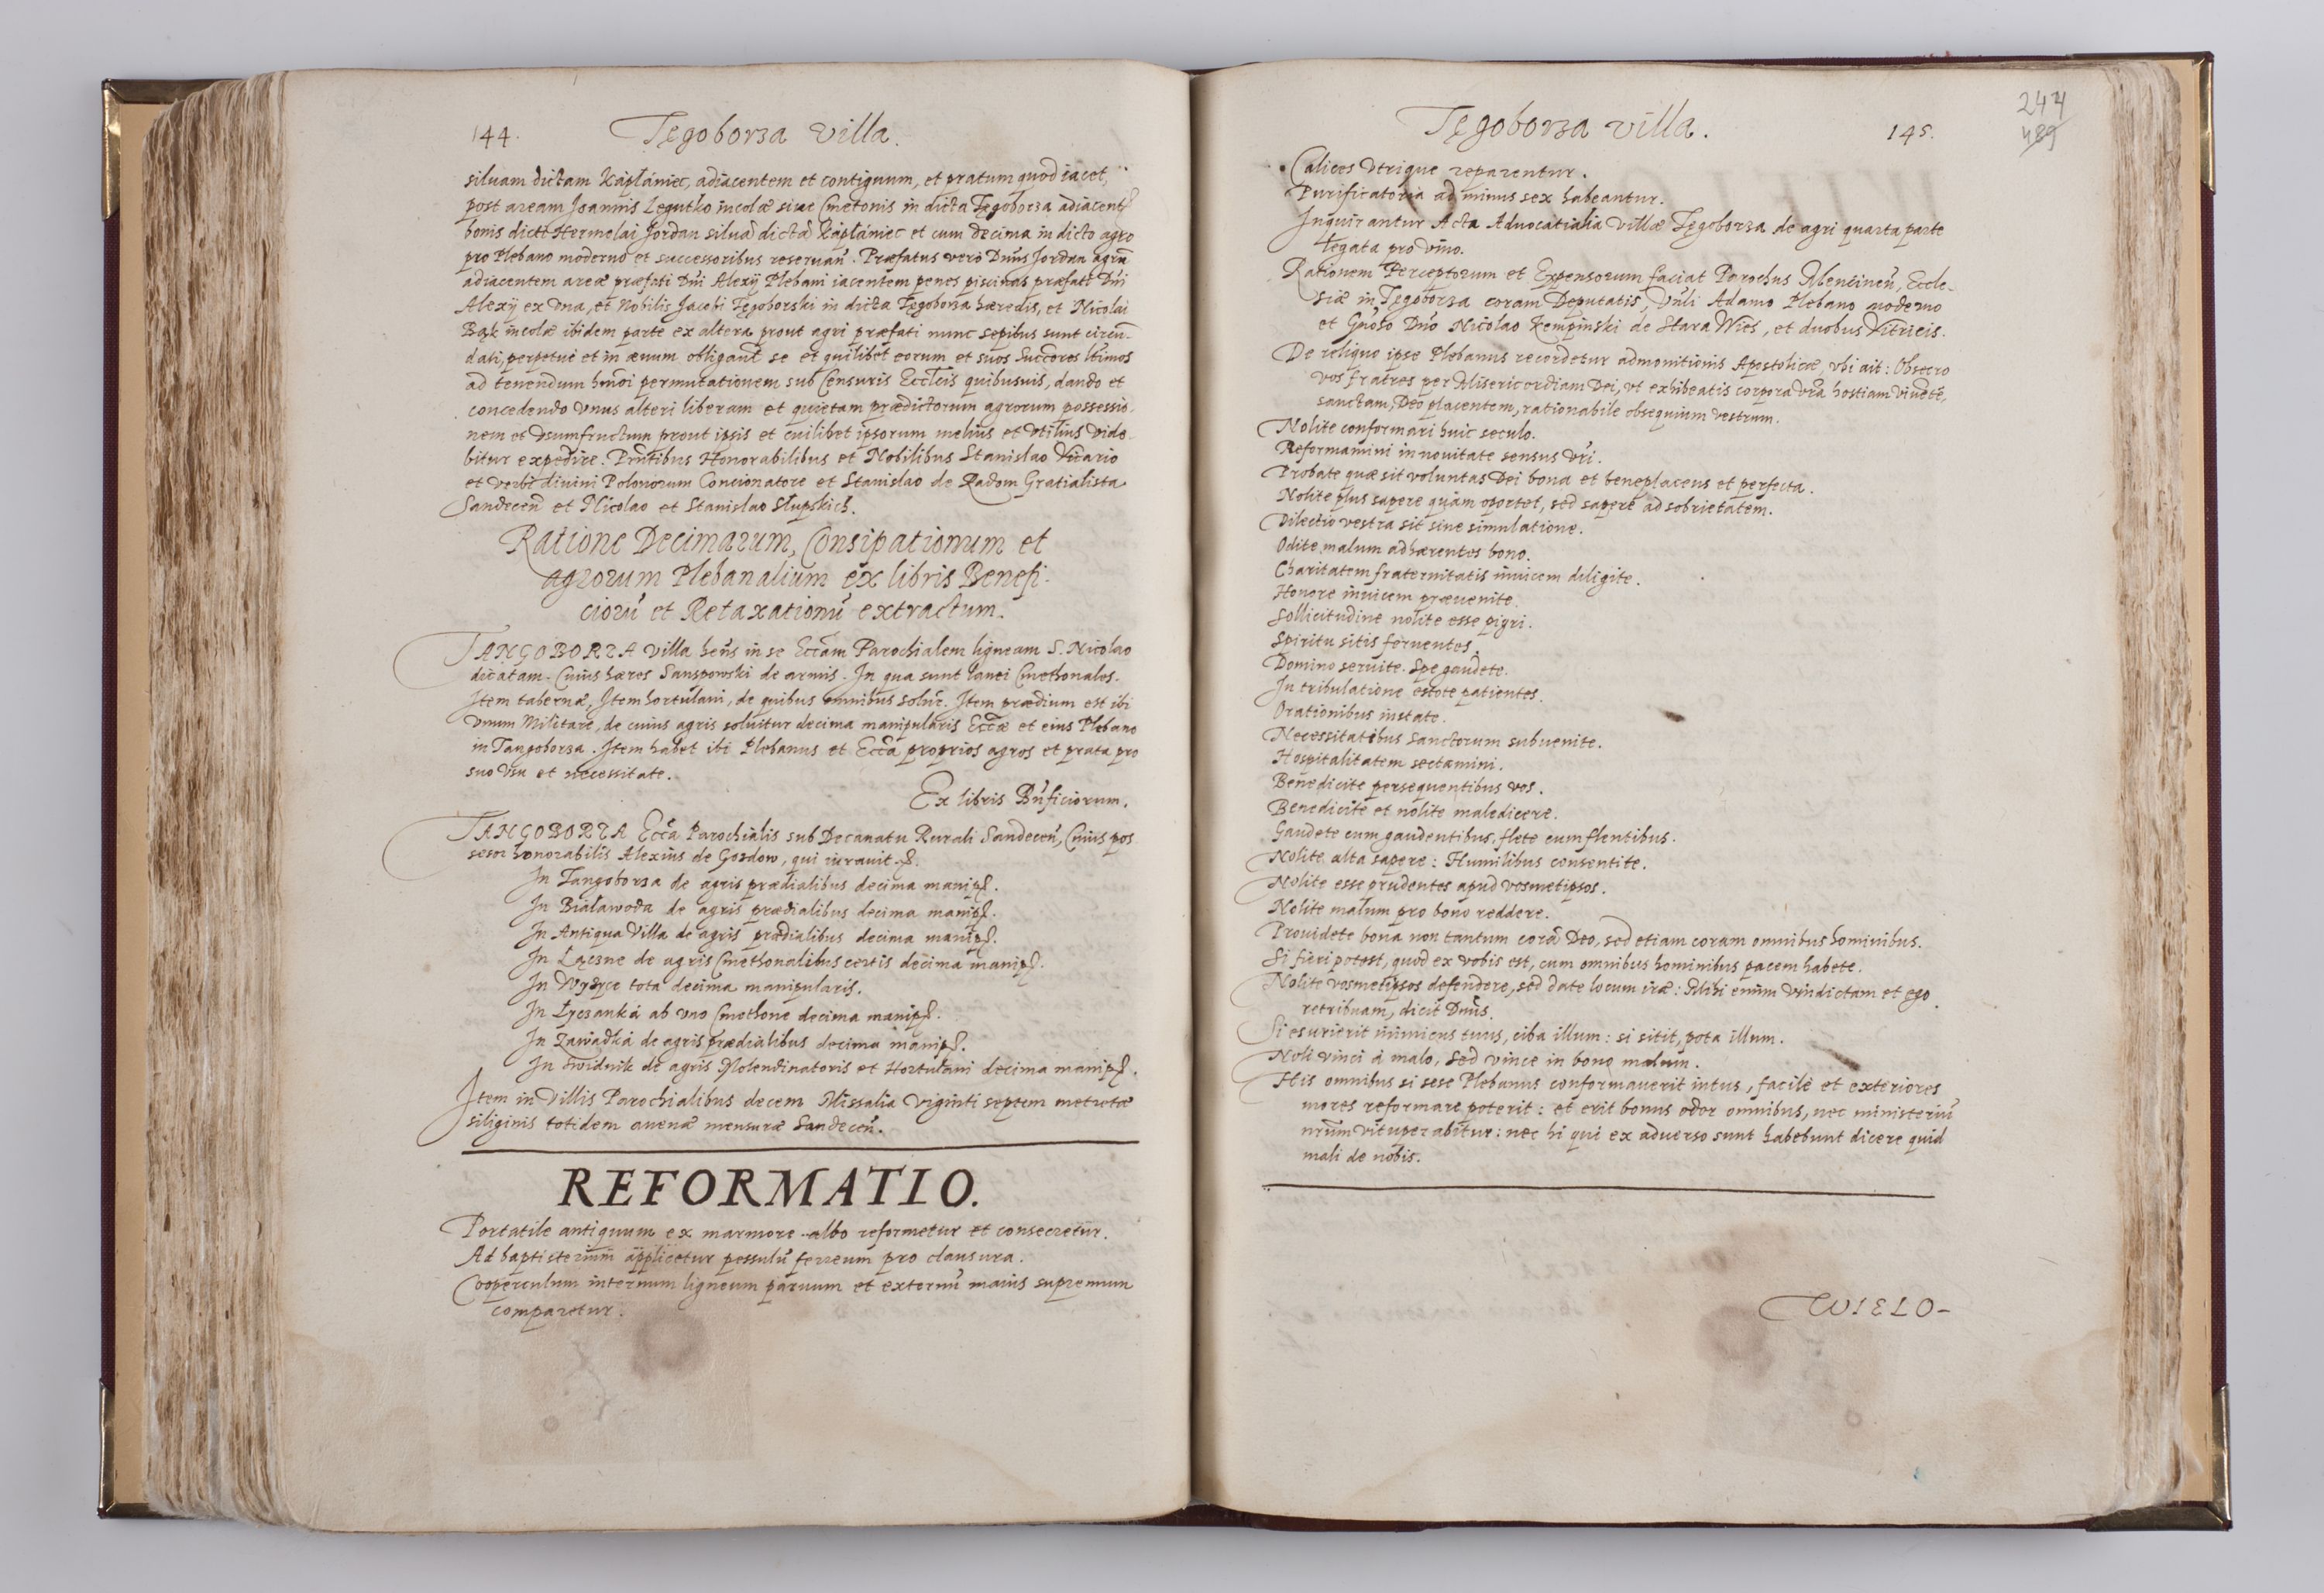 144. Tęgoborza villa.
siluam dictam Kápłániec, adiacentem et contiguum, et pratum quod iacet,
post aream Joannis Łęgutko incolæ siue Cmetonis in dicta Tęgoborza adiacent
bonis dicti Hermelai Jordan silua dicta Kápłániec et cum decima in dicto agro
pro Plebano moderno et successoribus reseruań. Præfatus verò Dn̄us Jordan agrū
adiacentem areæ præfati Dn̄i Alexij Plebani iacentem penes piscinas præfati Dn̄i
Alexij ex vna, et Nobilis Jacobi Tęgoborski in dicta Tęgoborza hæredis, et Nicolai
Bąk incolæ ibidem parte ex altera prout agri præfati nunc sepibus sunt circū-
dati, perpetuè et in æuum obligant se et quilibet eorum et suos succores ltimos
ad tenendum hmōi permutationem sub Censuris Eccleis quibusuis, dando et
concedendo vnus alteri liberam et quietam prædictorum agrorum possessio-
nem et vsumfructum prout ipsis et cuilibet ipsorum melius et vtilius vide-
bitur expedire. Pn̄tibus Honorabilibus et Nobilibus Stanislao Vicario
et verbi diuini Polonorum Concionatore et Stanislao de Radom Gratialista
Sandeceń et Nicolao et Stanislao Słupskich.
Ratione Decimarum, Consipationum et
agrorum Plebanalium ex libris Benefi-
ciorū et Retaxationū extractum.
TANGOBORZA villa hen̄s in se Eccām Parochialem ligneam S. Nicolao
dicatam. Cuius hæres Sanspowski de armis. In qua sunt lanei Cmethonales.
Item tabernæ, Item hortulani, de quibus omnibus soluīt. Item prædium est ibi
vnum Militare, de cuius agris soluitur decima manipularis Eccæ et eius Plebano
in Tangoborza. Item habet ibi Plebanus et Ecca proprios agros et prata pro
suo vsu et necessitate.
Ex libris Bn̄ficiorum.
TANGOBORZA Ecca Parochialis sub Decanatu Rurali Sandeceń, Cuius pos
sesor honorabilis Alexius de Gozdow, qui iurauit
In Tangoborza de agris prædialibus decima manip.
In Białawoda de agris prædialibus decima manip.
In Antiqua Villa de agris prædialibus decima manip.
In Łączne de agris Cmethonalibus certis decima manip.
In tota decima manipularis.
In ab vno Cmethone decima manip.
In Zawadká de agris prædialibus decima manip.
In Swidnik de agris Molendinatoris et Hortulani decima manip.
Item in villis Parochialibus decem Missalia viginti septem metretæ
siliginis totidem auenæ mensuræ Sandeceń.
REFORMATIO.
Portatile antiquum ex marmore albo reformetur et consecretur.
Ad baptisterium applicetur pessulū ferreum pro clausura.
Cooperculum internum ligneum paruum et externū maius supremum
comparetur.
Tęgoborza villa. 145.
244
489
Calices vtrique reparentur.
Purificatoria ad minus sex habeantur.
Inquirantur Acta Aduocatialia villæ Tęgoborza de agri quarta parte
legata pro vino.
Rationem Perceptorum et Expensorum faciat Parochus Mencineń, Eccle-
siæ in Tęgoborza coram Deputatis, Vn̄li Adamo Plebano moderno
et Gn̄oso Dn̄o Nicolao Kempinski de Stara Wieś, et duobus Vitricis.
De reliquo ipse Plebanus recordetur admonitionis Apostolicæ, vbi ait: Obsecro
vos fratres per Misericordiam Dei, vt exhibeatis corpora vr̄a hostiam viuētē,
sanctam, Deo placentem, rationabile obsequium vestrum.
Nolite conformari huic seculo.
Reformamini in nouitate sensus vr̄i.
Probate quæ sit voluntas Dei bona et beneplacens et perfecta.
Nolite plus sapere quàm oportet, sed sapere ad sobrietatem.
Dilectio vestra sit sine simulatione.
Odite malum adhærentes bono.
Charitatem fraternitatis inuicem diligite.
Honore inuicem præuenite.
Sollicitudine nolite esse pigri.
Spiritu sitis feruentes.
Domino seruite. Spe gaudete.
In tribulatione estote patientes.
Orationibus instate.
Necessitatibus Sanctorum subuenite.
Hospitalitatem sectamini.
Benedicite persequentibus vos.
Benedicite et nolite maledicere.
Gaudete cum gaudentibus, flete cum flentibus.
Nolite alta sapere: Humilibus consentite.
Nolite esse prudentes apud vosmetipsos.
Nolite malum pro bono reddere.
Prouidete bona non tantum corā Deo, sed etiam coram omnibus hominibus.
Si fieri potest, quod ex vobis est, cum omnibus hominibus pacem habete.
Nolite vosmetipsos defendere, sed date locum iræ: Mihi enim vindictam et ego
retribuam, dicit Dn̄us.
Si esurierit inimicus tuus, ciba illum: si sitit, pota illum.
Noli vinci à malo, sed vince in bono malum.
His omnibus si sese Plebanus conformauerit intus, facilè et exteriores
mores reformare poterit: et erit bonus odor omnibus, nec ministeriū
nr̄um vituperabitur: nec hi qui ex aduerso sunt habebunt dicere quid
mali de nobis.
WIELO-